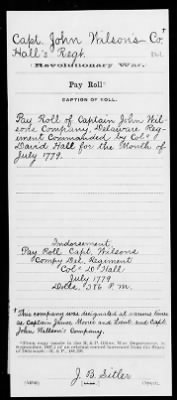 Capt. John Wilson's Co.†
Hall's Regt.
Del.
Revolutionary War.
Pay Roll*
CAPTION OF ROLL.
Pay Roll of Captain John Wil-
sons Company, Delaware Reg-
iment Commanded by Colo
David Hall for the Month of
July 1779.
Indorsement
Pay Roll Capt. Wilsons
Compy Del. Regiment
Colo D. Hall
July 1779
Dolls. 386 P. M.
†This company was designated at various times
as Captain James Moore's and Lieut. and Capt.
John Wilson's Company.
J. B. Sitler